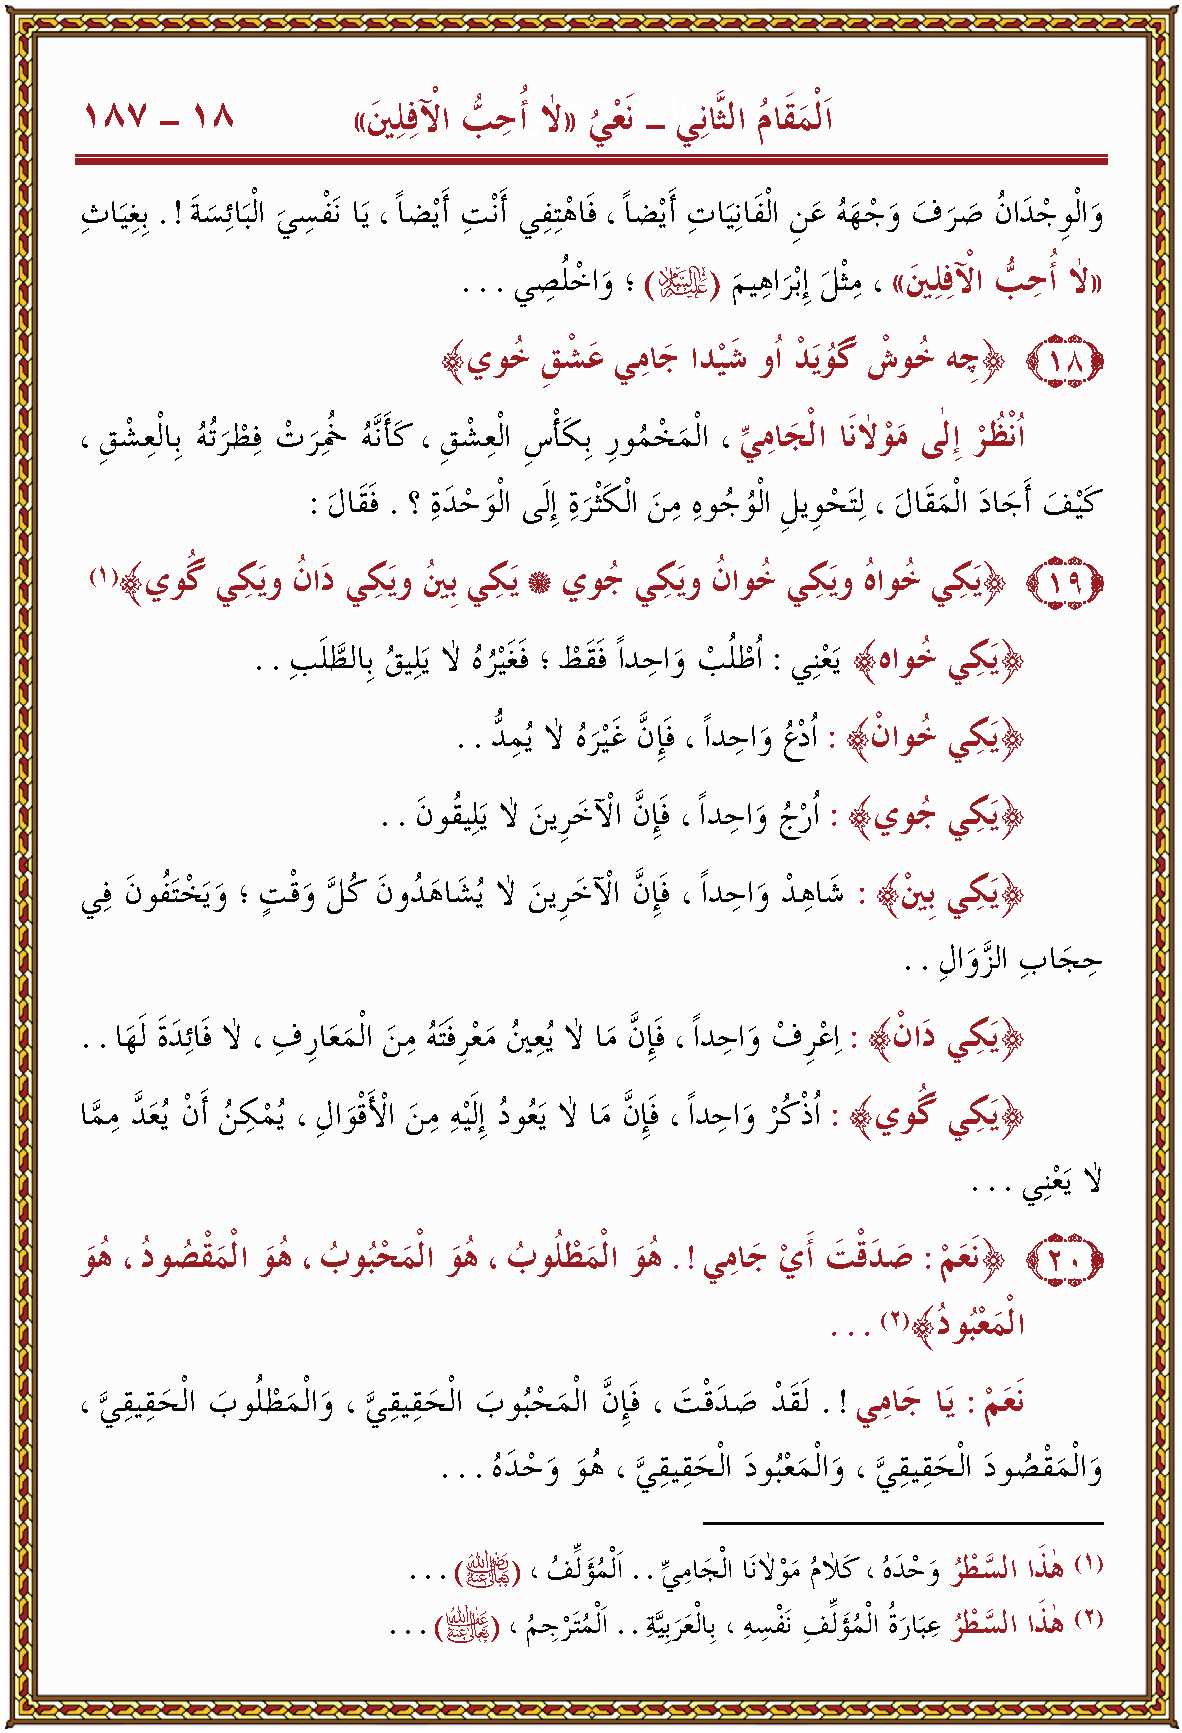 اَلْمَقَامُ الثَّانِي ـ نَعْيُ «لاٰ أُحِبُّ الْآفِلِينَ» ١٨ ـ ١٨٧
وَالْوِجْدَانُ صَرَفَ وَجْهَهُ عَنِ الْفَانِيَاتِ أَيْضاً ، فَاهْتِفِي أَنْتِ أَيْضاً ، يَا نَفْسِيَ الْبَائِسَةَ ! . بِغِيَاثِ
«لاٰ أُحِبُّ الْآفِلِينَ» ، مِثْلَ إِبْرَاهِيمَ (عَلَيْهِ السَّلَامُ) ؛ وَاخْلُصِي . . .
(١٨) ﴿چِه خُوشْ گُوَيَدْ اُو شَيْدا جَامِي عَشْقِ خُوي﴾
اُنْظُرْ إِلٰى مَوْلاٰنَا الْجَامِيِّ ، الْمَخْمُورِ بِكَأْسِ الْعِشْق ، كَأَنَّهُ خُمِّرَتْ فِطْرَتُهُ بِالْعِشْقِ ،
كَيْفَ أَجَادَ الْمَقَالَ ، لِتَحْوِيلِ الْوُجُوهِ مِنَ الْكَثْرَةِ إِلَى الْوَحْدَةِ ؟ . فَقَالَ :
(١٩) ﴿يَكِي خُواهُ ويَكِي خُوانُ ويَكِي جُوي ۞ يَكِي بِينُ ويَكِي دَانُ ويَكِي گُوي﴾(١)
﴿يَكِي خُواه﴾ يَعْنِي : اُطْلُبْ وَاحِداً فَقَطْ ؛ فَغَيْرُهُ لاٰ يَلِيقُ بِالطَّلَبِ . .
﴿يَكِي خُوانْ﴾ : اُدْعُ وَاحِداً ، فَإِنَّ غَيْرَهُ لاٰ يُمِدُّ . .
﴿يَكِي جُوي﴾ : اُرْجُ وَاحِداً ، فَإِنَّ الْآخَرِينَ لاٰ يَلِيقُونَ . .
﴿يَكِي بِينْ﴾ : شَاهِدْ وَاحِداً ، فَإِنَّ الْآخَرِينَ لاٰ يُشَاهَدُونَ كُلَّ وَقْتٍ ؛ وَيَخْتَفُونَ فِي
حِجَابِ الزَّوَالِ . .
﴿يَكِي دَانْ﴾ : اِعْرِفْ وَاحِداً ، فَإِنَّ مَا لاٰ يُعِينُ مَعْرِفَتَهُ مِنَ الْمَعَارِفِ ، لاٰ فَائِدَةَ لَهَا . .
﴿يَكِي گُوي﴾ : اُذْكُرْ وَاحِداً ، فَإِنَّ مَا لاٰ يَعُودُ إِلَيْهِ مِنَ الْأَقْوَالِ ، يُمْكِنُ أَنْ يُعَدَّ مِمَّا
لاٰ يَعْنِي . . .
(٢٠) ﴿نَعَمْ : صَدَقْتَ أَيْ جَامِي ! . هُوَ الْمَطْلُوبُ ، هُوَ الْمَحْبُوبُ ، هُوَ الْمَقْصُودُ ، هُوَ
الْمَعْبُودُ﴾(٢) . . .
نَعَمْ : يَا جَامِي ! . لَقَدْ صَدَقْتَ ، فَإِنَّ الْمَحْبُوبَ الْحَقِيقِيَّ ، وَالْمَطْلُوبَ الْحَقِيقِيَّ ،
وَالْمَقْصُودَ الْحَقِيقِيَّ ، وَالْمَعْبُودَ الْحَقِيقِيَّ ، هُوَ وَحْدَهُ . . .
(١) هٰذَا السَّطْرُ وَحْدَهُ ، كَلاٰمُ مَوْلاٰنَا الْجَامِيِّ . . اَلْمُؤَلِّفُ ، (رَضِيَ اللهُ تَعَالَى عَنْهُ) . . .
(٢) هٰذَا السَّطْرُ عِبَارَةُ الْمُؤَلِّفِ نَفْسِهِ ، بِالْعَرَبِيَّةِ . . اَلْمُتَرْجِمُ ، (عَفَا اللهُ تَعَالَى عَنْهُ) . . .